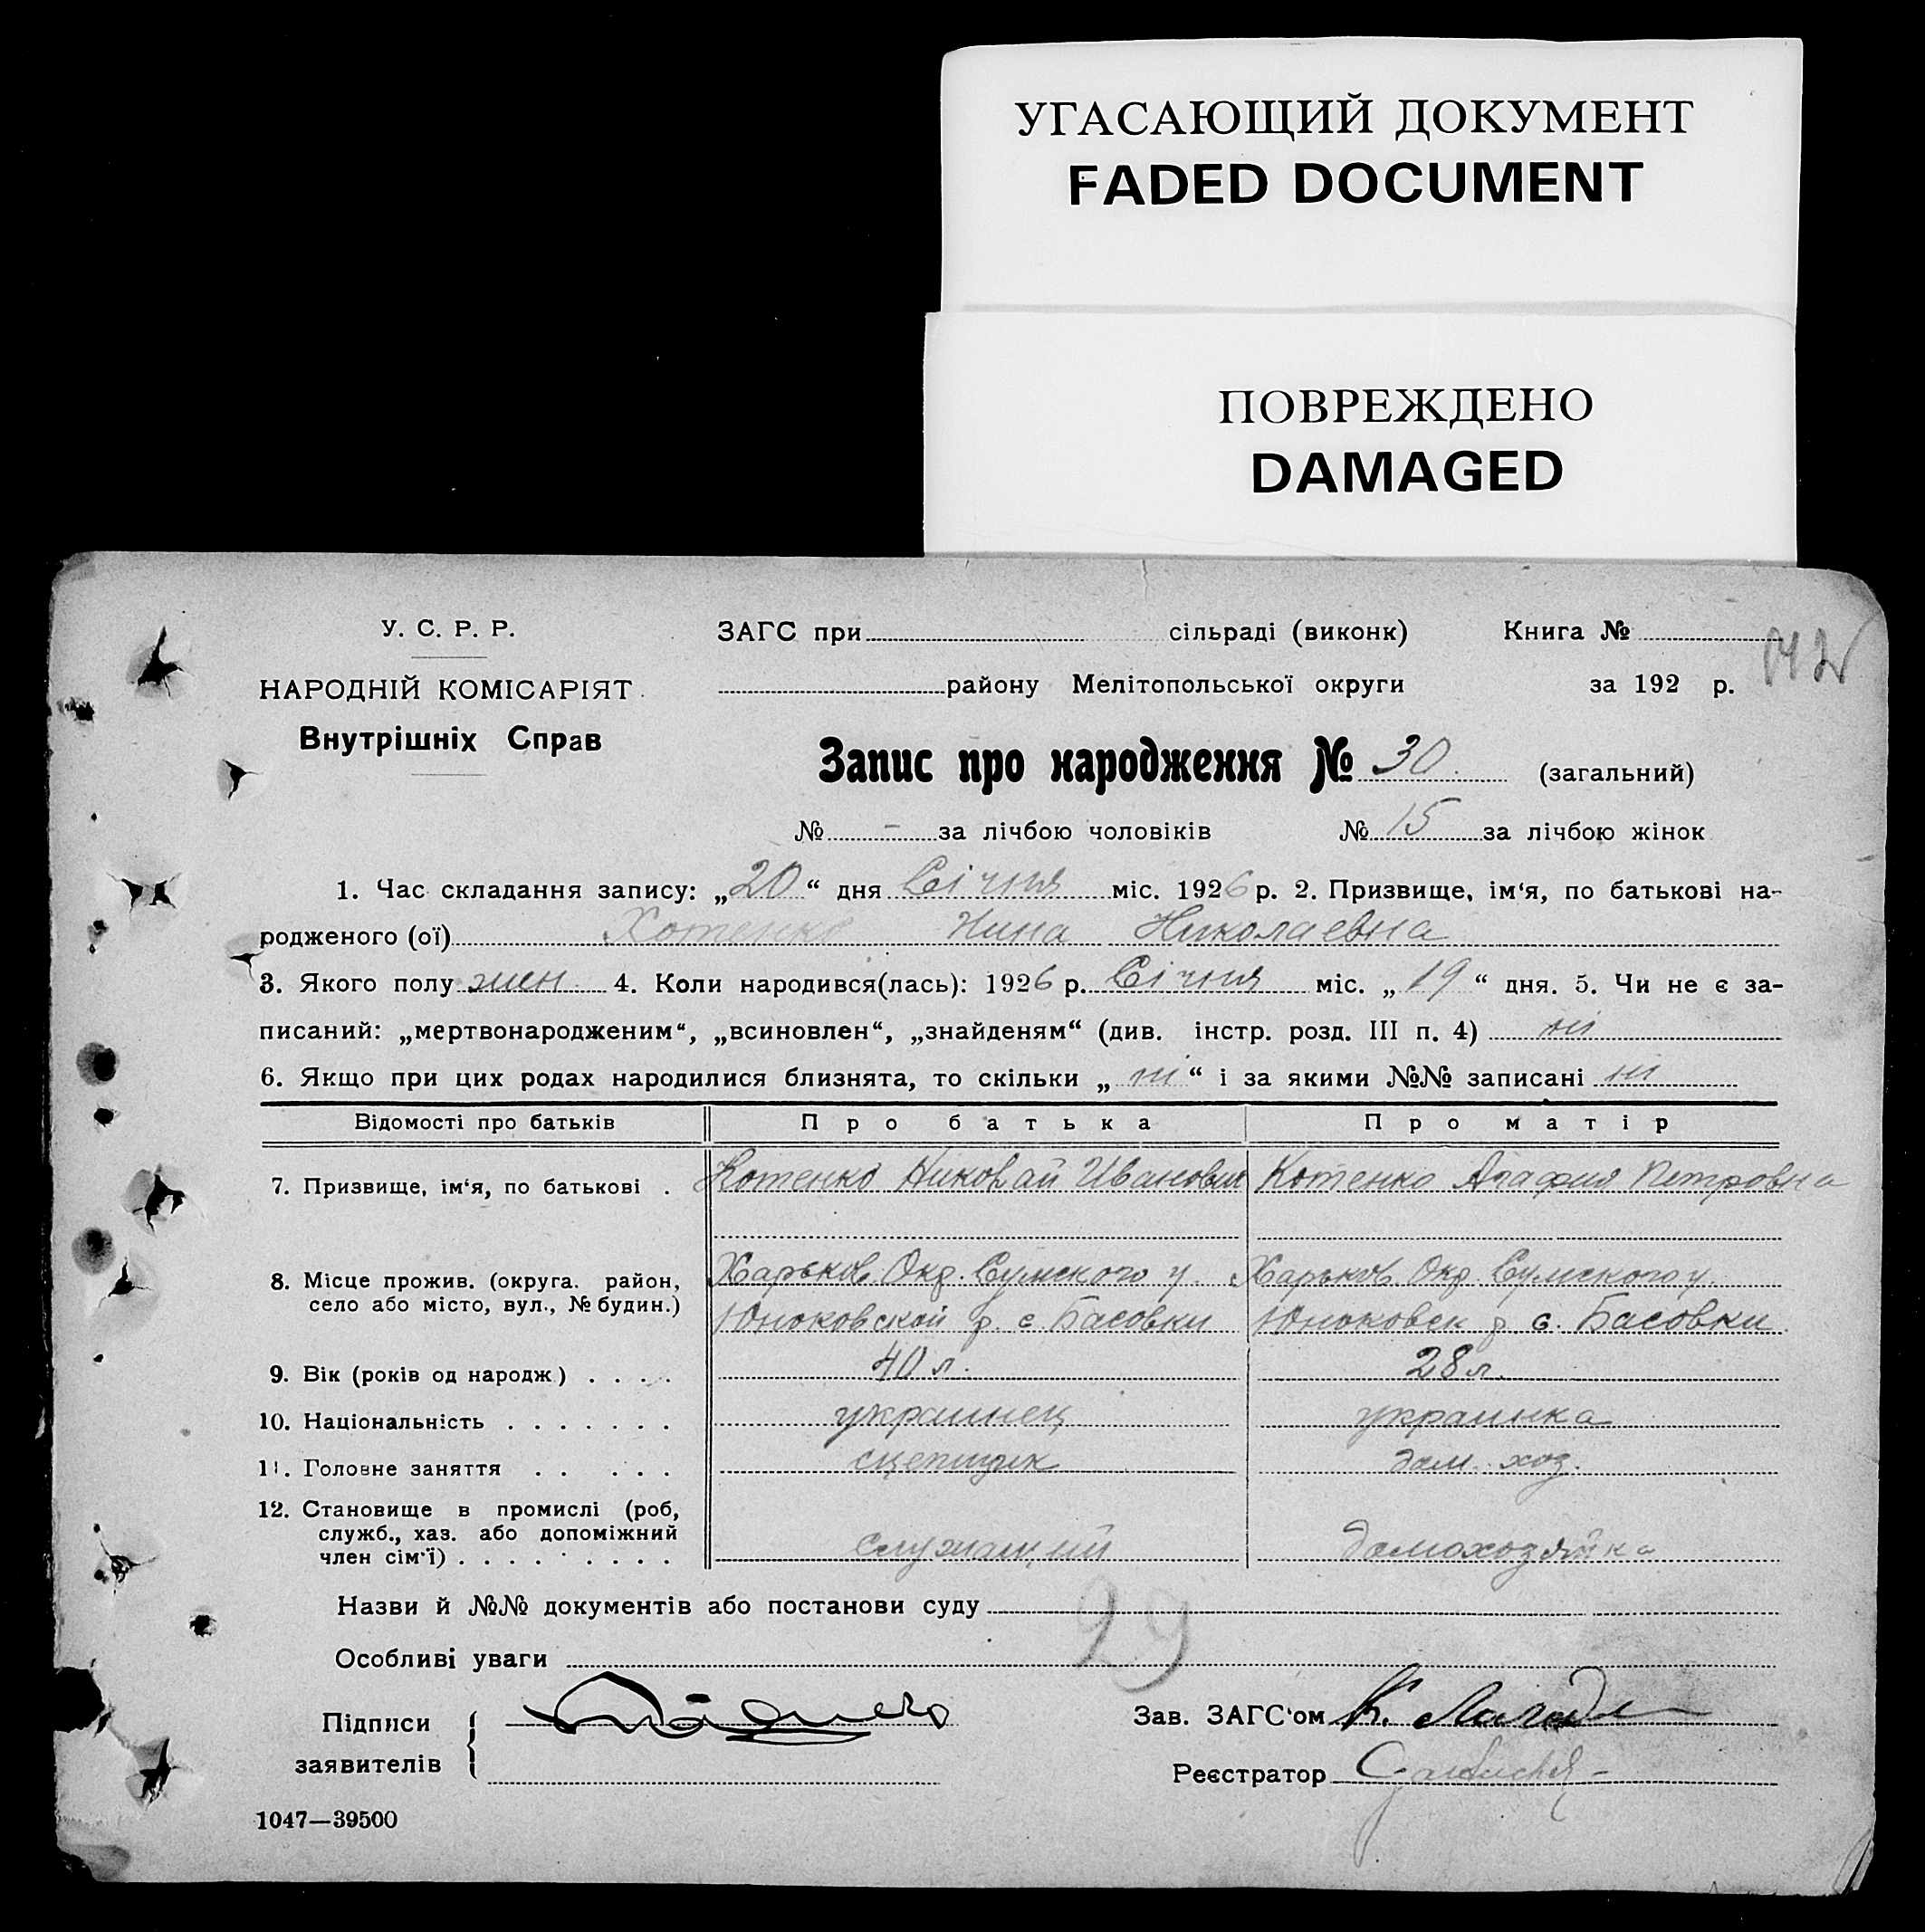 УГАСАЮЩИЙ ДОКУМЕНТ
FADED DOCUMENT
ПОВРЕЖДЕНО
DAMAGED
У. С. Р. Р.
ЗАГС при сільраді (виконк) Книга №
НАРОДНІЙ КОМІСАРІЯТ
району Мелітопольської округи за 192 р.
Внутрішніх Справ
Запис про народження № 30 (загальний)
№ - за лічбою чоловіків № 15 за лічбою жінок
1. Час складання запису: „20“ дня Січня міс. 1926 р. 2. Призвище, ім‘я, по батькові на-
родженого (ої) Котенко Нина Николаевна
3. Якого полу жен 4. Коли народився(лась): 1926 р. Січня міс. „19“ дня. 5. Чи не є за-
писаний: „мертвонародженим“, „всиновлен“, „знайденям“ (див. інстр. розд. III п. 4) ні
6. Якщо при цих родах народилися близнята, то скільки „ні“ і за якими №№ записані ні
Відомості про батьків Про батька Про матір
7. Призвище, ім‘я, по батькові . Котенко Николай Иванович Котенко Агафия Петровна
8. Місце прожив. (округа. район, Харьков. Окр. Сумского у. Харьков Окр. Сумского у.
село або місто, вул., № будин.) Юноковской р. с. Басовки Юноковск р с. Басовки
9. Вік (років од народж) . . . . 40 л. 28 л.
10. Національність . . . . . . . украинец украинка
11. Головне заняття . . . . . сцепщик дом. хоз.
12. Становище в промислі (роб,
служб., хаз. або допоміжний
член сім‘ї) . . . . . . . . . служащий домохозяйка
Назви й №№ документів або постанови суду
29
Особливі уваги
Підписи
заявителів
Зав. ЗАГС‘ом К.
Реєстратор
1047—39500